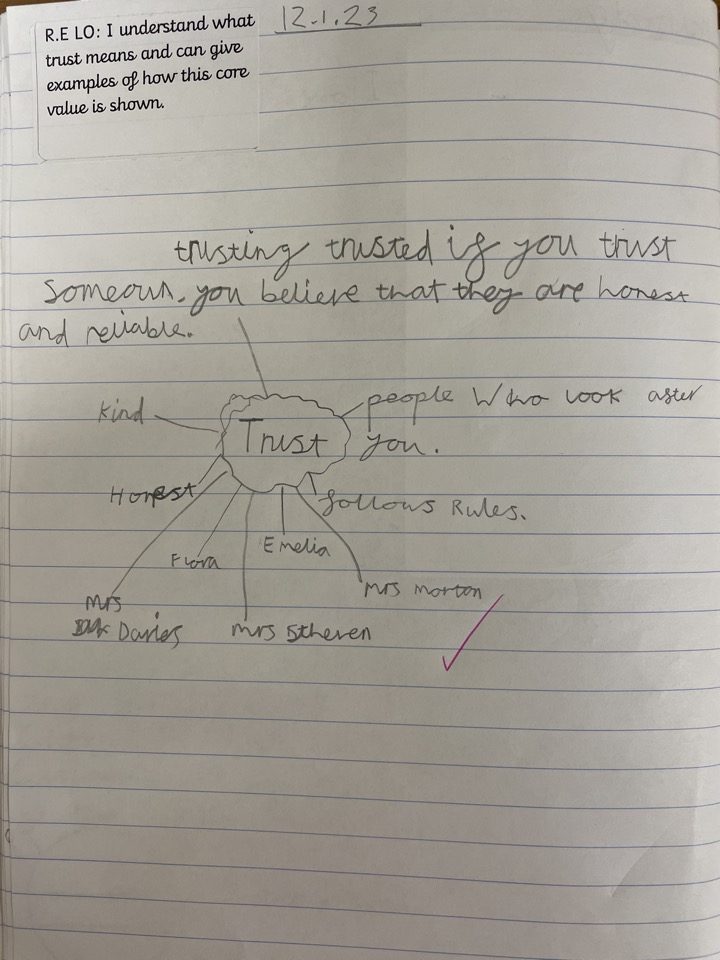 R.E LO: I understand what
trust means and can give
examples of how this core
value is shown.
12.1.23
trusting trusted if you trust
Someoun. you believe that they are honest
and reliable.
Kind
people who look after
you.
Trust
Honest
follows Rules.
Flora
Emelia
Mrs
Davies
mrs stheven
mrs morton